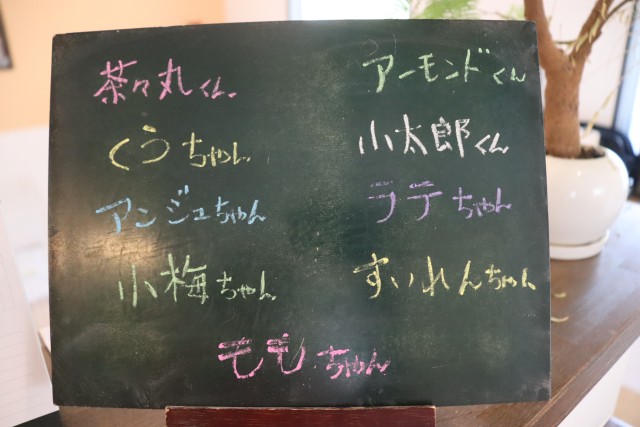 茶々丸くん
くうちゃん
アンジュちゃん
小梅ちゃん
アーモンドくん
小太郎くん
ラテちゃん
すいれんちゃん
モモちゃん